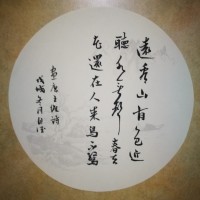 遠看山有色近
聽水無聲春去
花還在人來鳥不驚
唐王維詩
戊戌年月